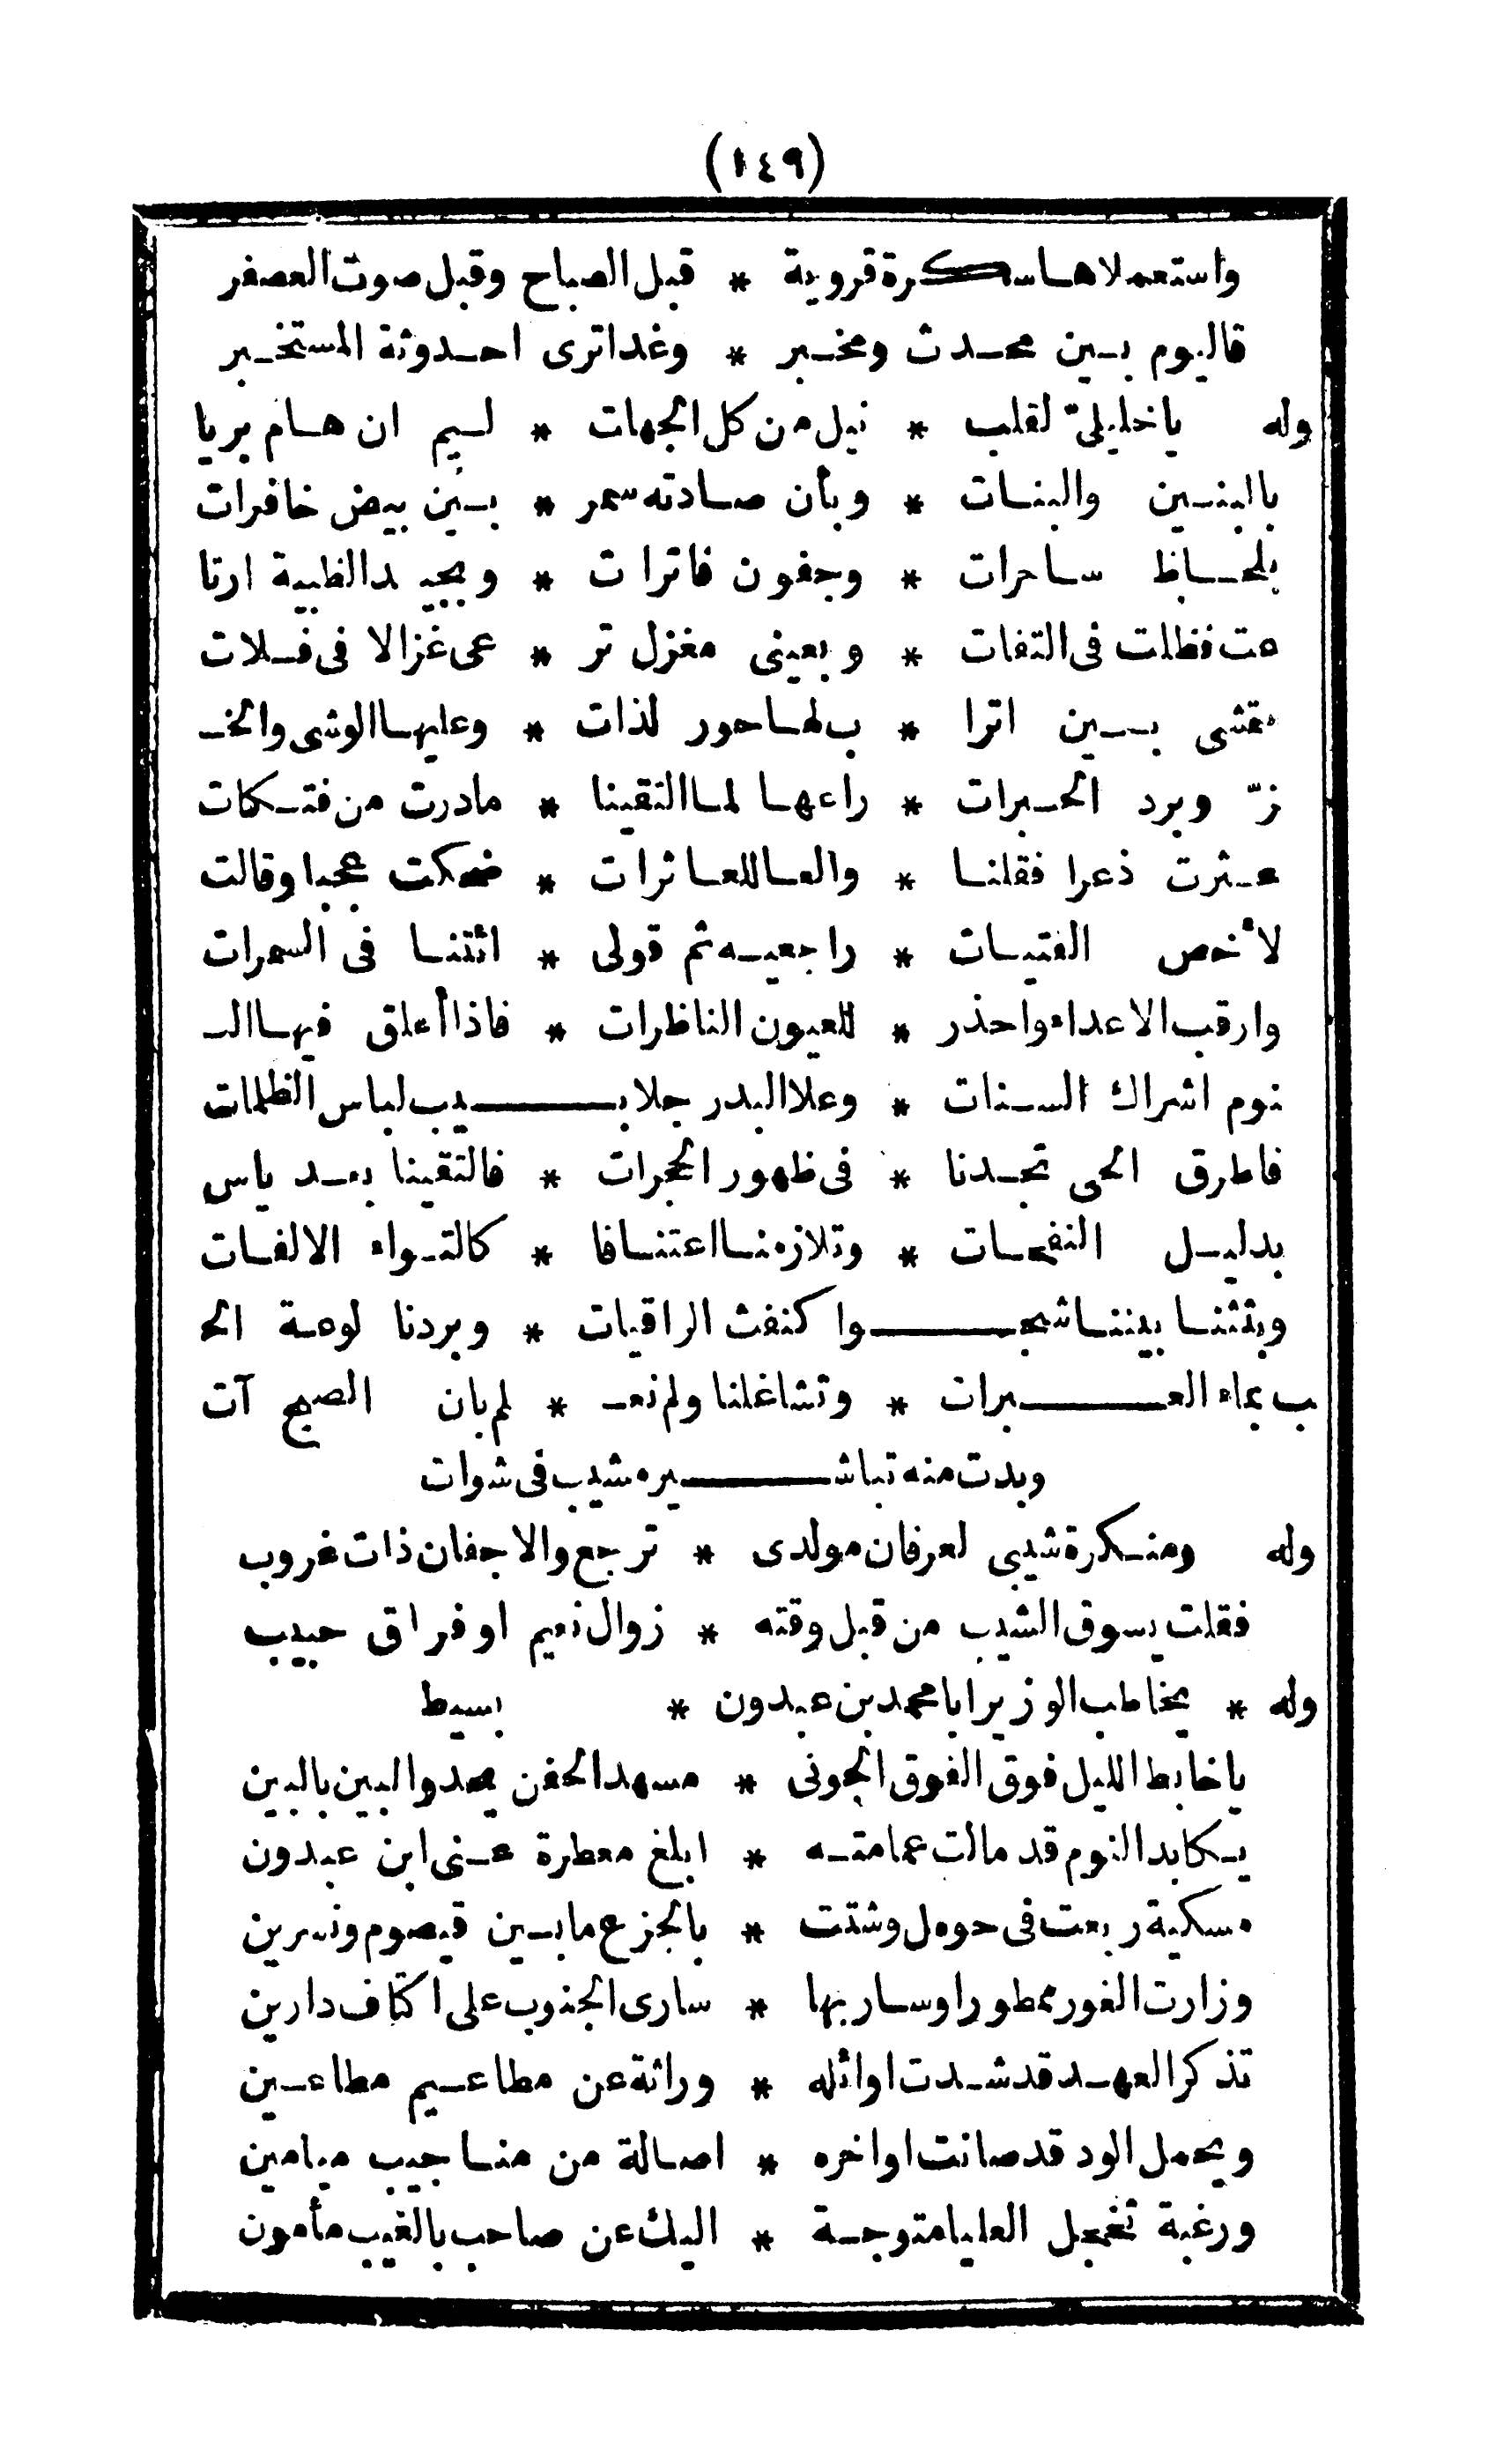 (١٤٩)
واستعملاها سكرة قروية * قبل الصباح وقبل صوت العصفر
فاليوم بين محدث ومخبر * وغدا ترى احدوثة المستخبر
وله يا خليلىّ لقلب * نيل من كل الجهات * ليم ان هام بريا
بالبنين والبنات * وبأن صادته سمر * بين بيض خافرات
بلحاظ ساحرات * وجفون فاترات * وبجيد الظبية ارتا
عت فظلت فى التفات * وبعينى مغزل تر * عى غزالا فى فلات
تمشى بين اترا * ب لها حور لذات * وعليها الوشى والخـ
زّ وبرد الحبرات * راعها لما التقينا * ما درت من فتكات
عثرت ذعرا فقلنا * والعا للعاثرات * ضحكت عجبا وقالت
لأخص الفتيات * راجعيه ثم قولى * ائتنا فى السمرات
وارقب الاعداء واحذر * للعيون الناظرات * فاذا أعلق فيها الـ
نوم اشراك السنات * وعلا البدر جلابيب لباس الظلمات
فاطرق الحى تجدنا * فى ظهور الحجرات * فالتقينا بعد ياس
بدليل النفحات * وتلازمنا اعتناقا * كالتواء الالفات
وبثثنا بيننا شجوا كنفث الراقيات * وبردنا لوعة الحـ
ب بماء العبرات * وتشاغلنا ولم نعـ * لم بان الصبح آت
وبدت منه تباشيره شيب فى شوات
وله ومنكرة شيبى لعرفان مولدى * ترجع والاجفان ذات غروب
فقلت يسوق الشيب من قبل وقته * زوال نعيم او فراق حبيب
وله * يخاطب الوزير ابا محمد بن عبدون * بسيط
يا خابط الليل فوق الفوق الجونى * مسهد الجفن يحدو البين بالبين
يكابد النوم قد مالت عمامته * ابلغ معطرة عنى ابن عبدون
مسكية ربعت فى حومل وشتت * بالجزع ما بين قيصوم ونسرين
وزارت الغور ممطورا وسار بها * سارى الجنوب على اكتاف دارين
تذكر العهد قد شدت اوائله * وراثة عن مطاعيم مطاعين
ويحمل الود قد صانت اواخره * اصالة من مناجيب ميامين
ورغبة تخجل العليا متوجة * اليك عن صاحب بالغيب مأمون